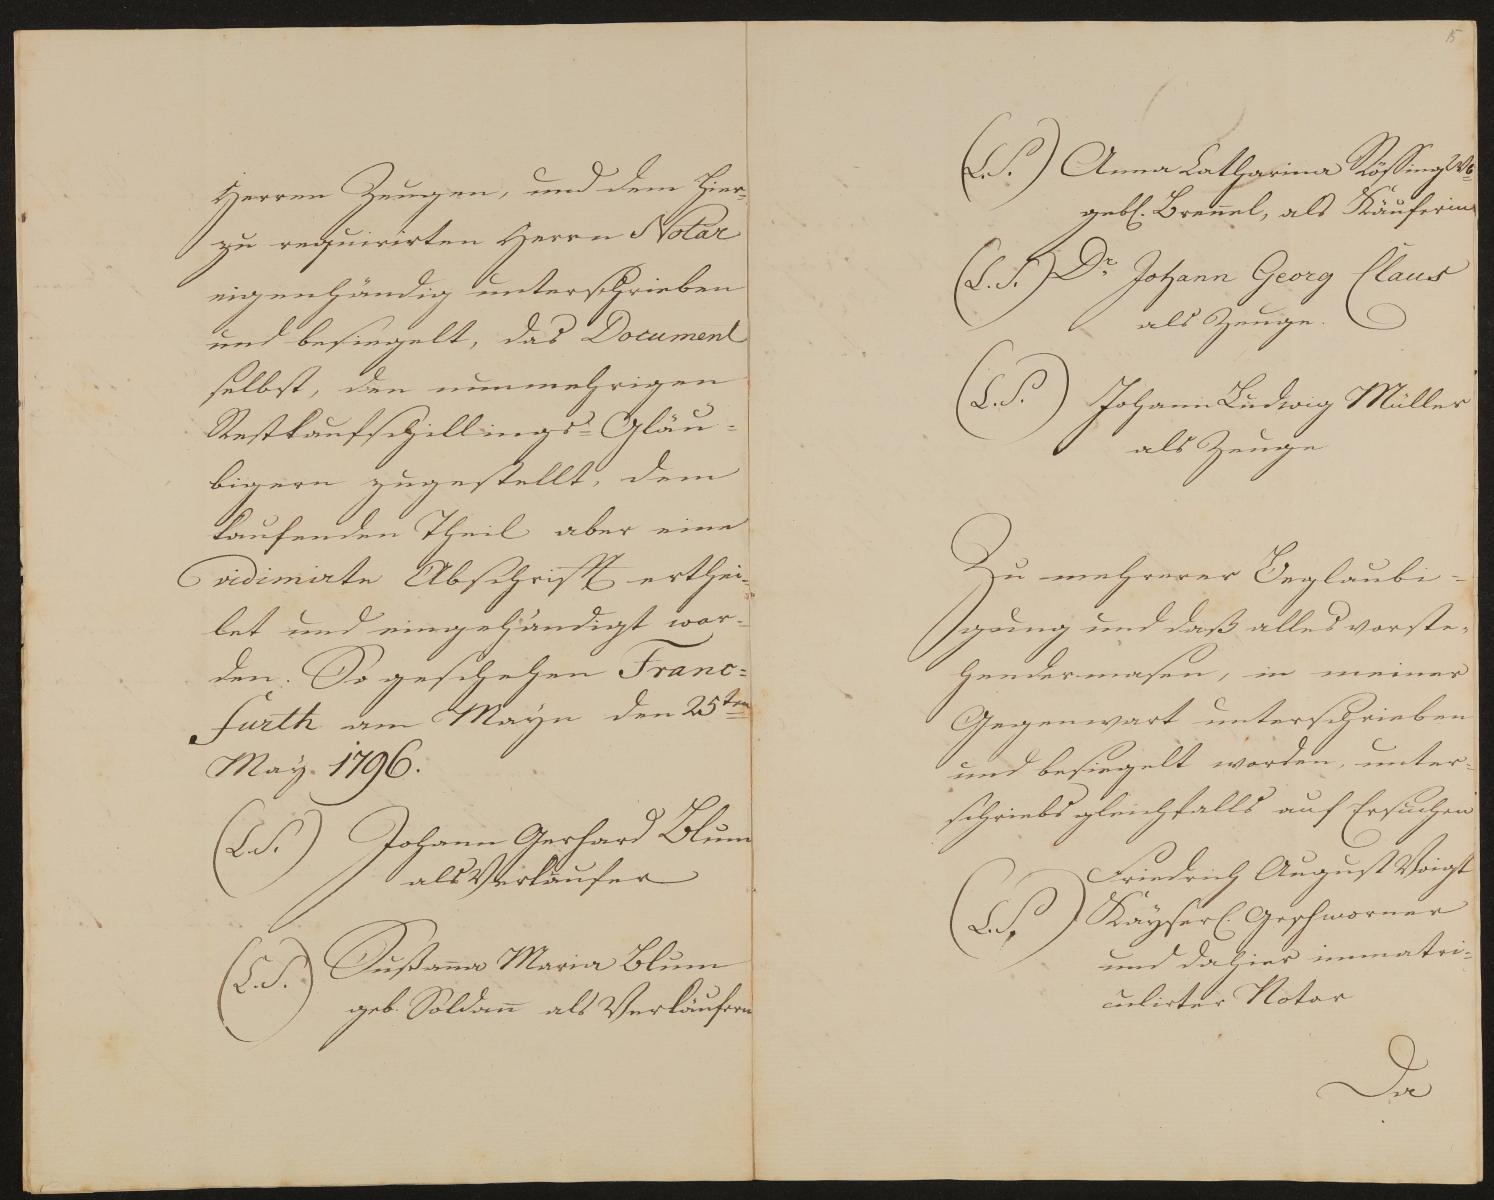 Herren Zeugen, und dem hier-
zu requirirten Herrn Notar
eigenhändig unterschrieben
und besiegelt, das Document
selbst, den nunmehrigen
Restkaufschillings-Gläu-
bigern zugestellt, dem
kaufenden Theil aber eine
vidimirte Abschrifft erthei-
let und eingehändigt wor-
den. So geschehen Franc-
furth am Mayn den 25ten
May. 1796.
(L.S.) Johann Gerhard Blum
als Verkäufer
(L.S.) Sußanna Maria Blum
geb. Soldann als Verkäufern
15
(L.S.) Anna Catharina Rössing Wb
gebl. Brennel, als Käuferin
(L.S.) Dr. Johann Georg Claus
als Zeuge.
(L.S.) Johann Ludwig Müller
als Zeuge
Zu mehrerer Beglaubi-
gung und daß alles vorste-
hendermasen, in meiner
Gegenwart unterschrieben
und besiegelt worden, unter-
schriebs gleichfalls auf Ersuchen
(L.S.) Friedrich August Voigt
Kayserl. Geschworner
und dahier immatri-
culirter Notar
Da